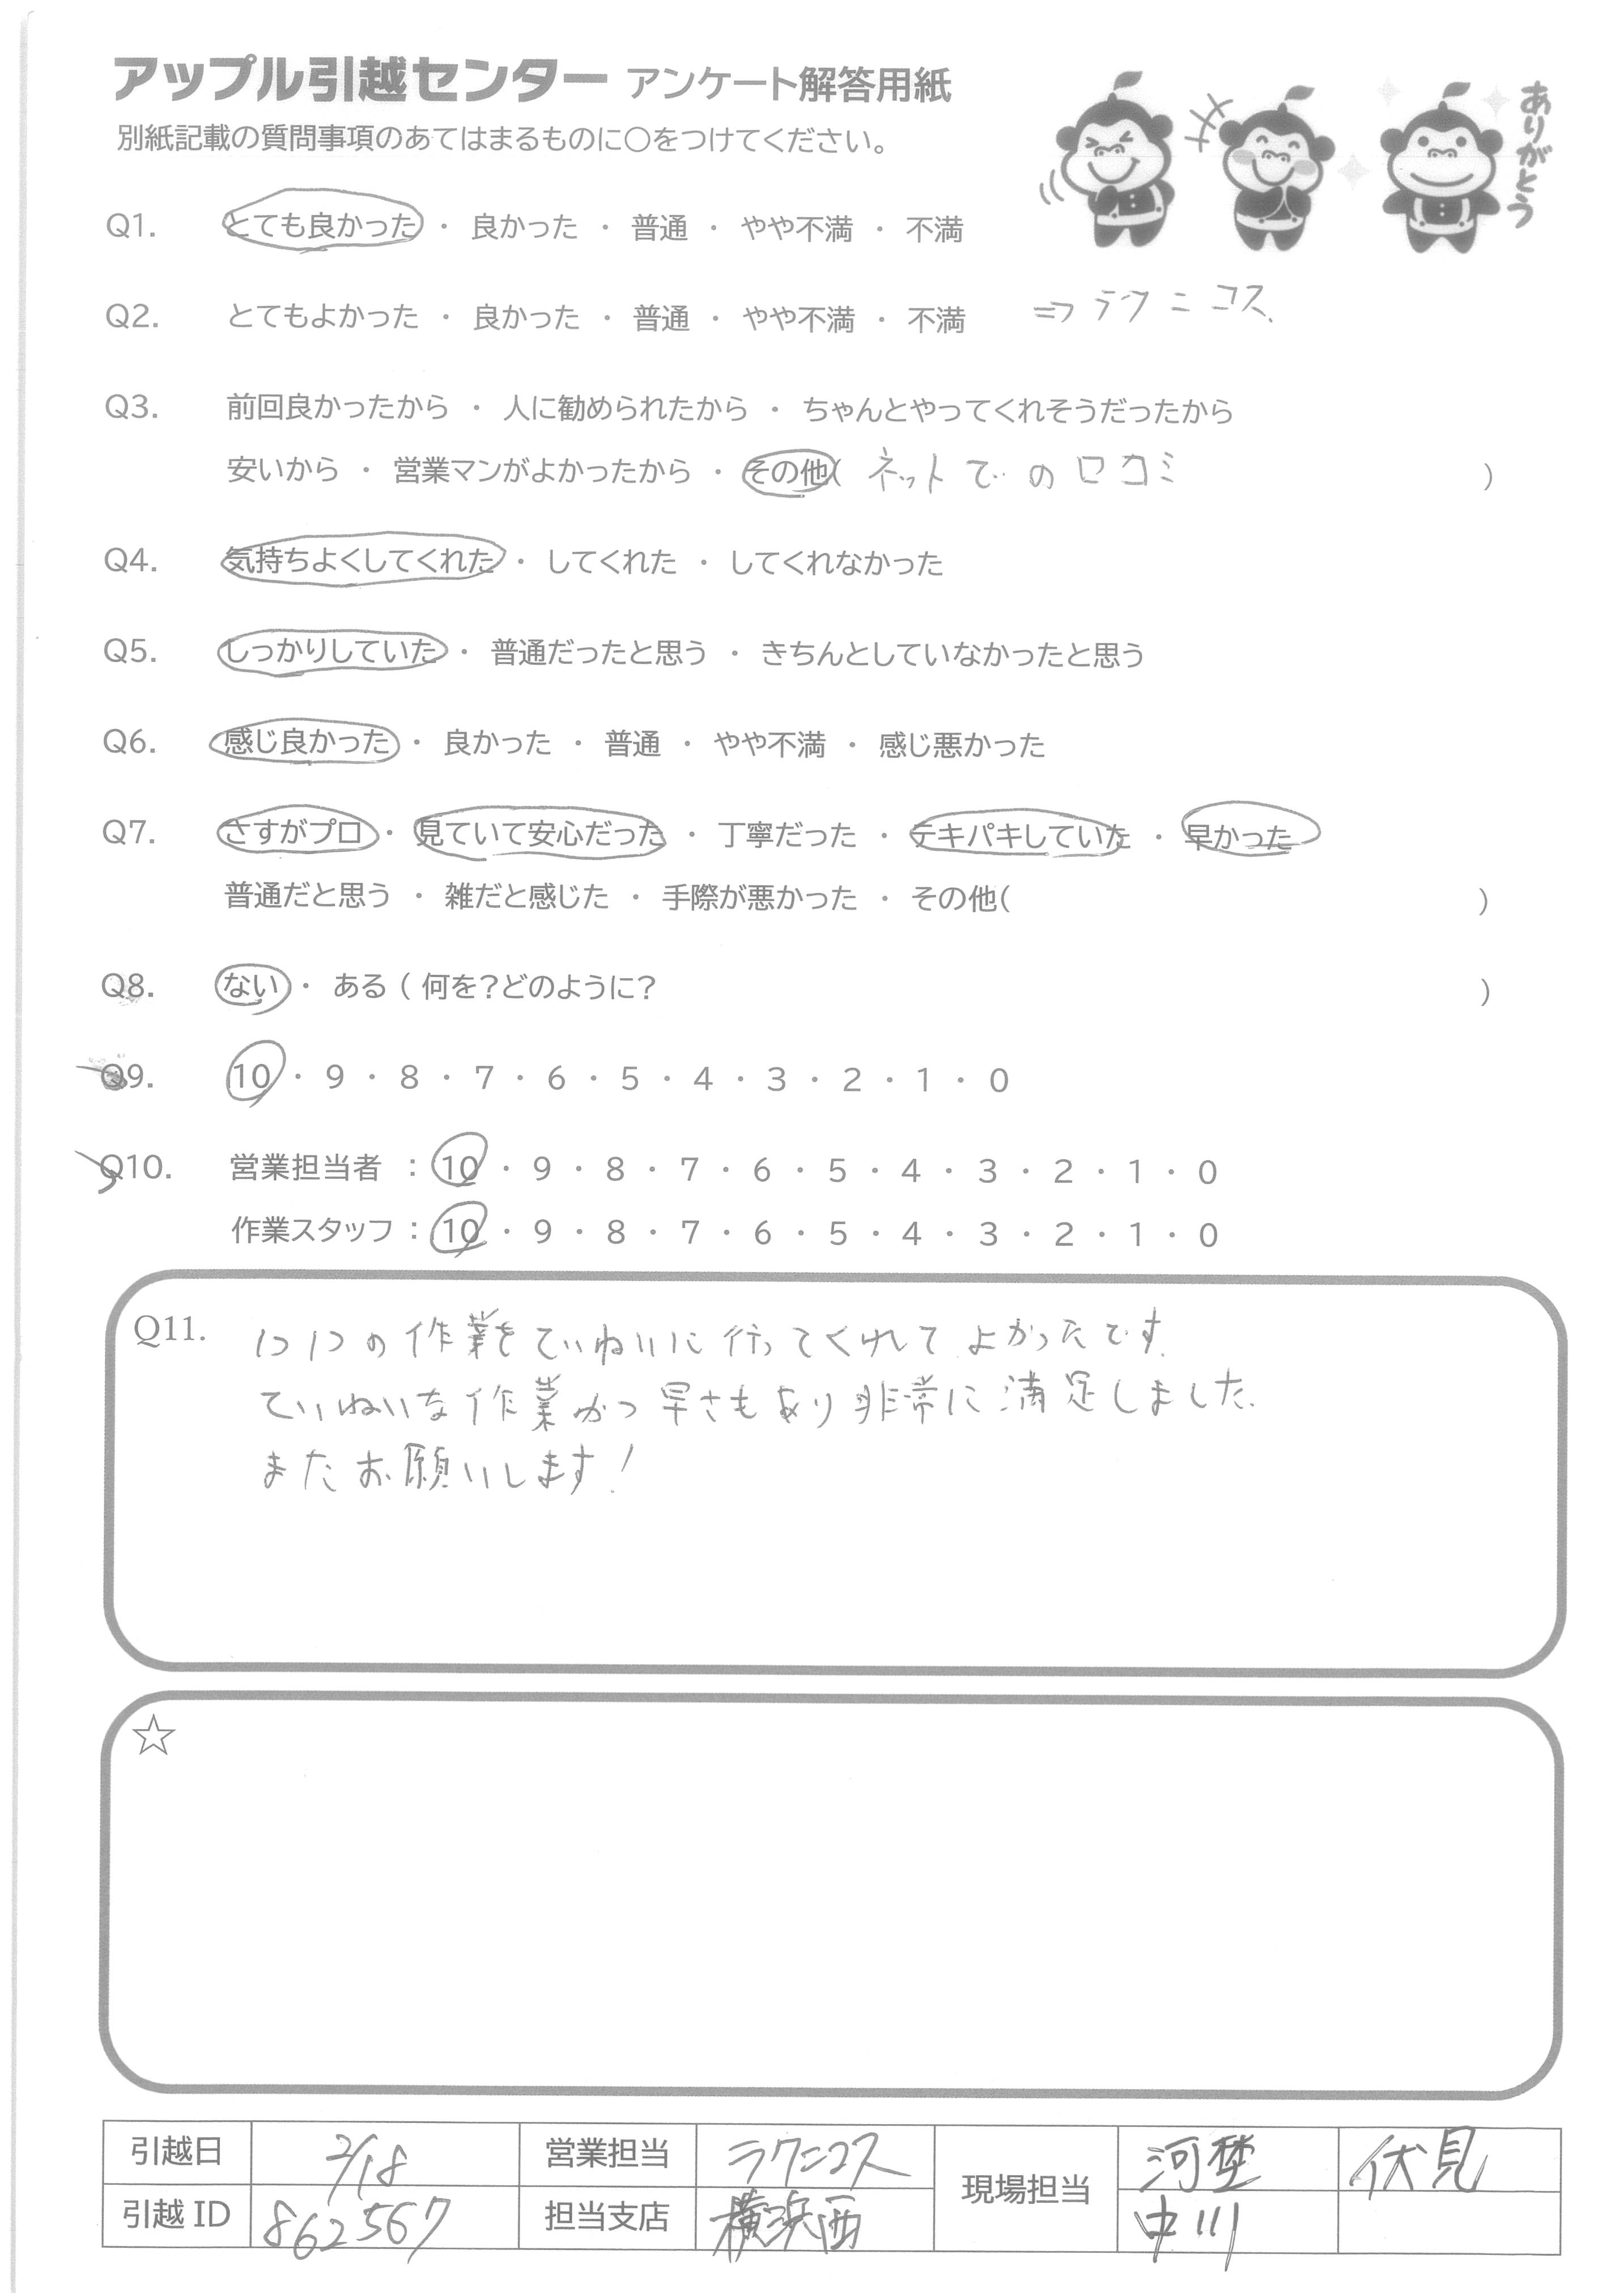 アップル引越センター アンケート解答用紙
別紙記載の質問事項のあてはまるものに○をつけてください。
ありがとう
Q1. とても良かった ・ 良かった ・ 普通 ・ やや不満 ・ 不満
Q2. とてもよかった ・ 良かった ・ 普通 ・ やや不満 ・ 不満 ⇒ ラクニコス
Q3. 前回良かったから ・ 人に勧められたから ・ ちゃんとやってくれそうだったから
安いから ・ 営業マンがよかったから ・ その他( ネットでの口コミ )
Q4. 気持ちよくしてくれた ・ してくれた ・ してくれなかった
Q5. しっかりしていた ・ 普通だったと思う ・ きちんとしていなかったと思う
Q6. 感じ良かった ・ 良かった ・ 普通 ・ やや不満 ・ 感じ悪かった
Q7. さすがプロ ・ 見ていて安心だった ・ 丁寧だった ・ テキパキしていた ・ 早かった
普通だと思う ・ 雑だと感じた ・ 手際が悪かった ・ その他( )
Q8. ない ・ ある ( 何を?どのように? )
Q9. 10 ・ 9 ・ 8 ・ 7 ・ 6 ・ 5 ・ 4 ・ 3 ・ 2 ・ 1 ・ 0
Q10. 営業担当者 : 10 ・ 9 ・ 8 ・ 7 ・ 6 ・ 5 ・ 4 ・ 3 ・ 2 ・ 1 ・ 0
作業スタッフ : 10 ・ 9 ・ 8 ・ 7 ・ 6 ・ 5 ・ 4 ・ 3 ・ 2 ・ 1 ・ 0
Q11. 1つ1つの作業をていねいに行ってくれてよかったです。
ていねいな作業かつ早さもあり非常に満足しました。
またお願いします!
☆
引越日 2/18 営業担当 ラクニコス 現場担当 河埜 伏見
引越 ID 862567 担当支店 横浜西 中川